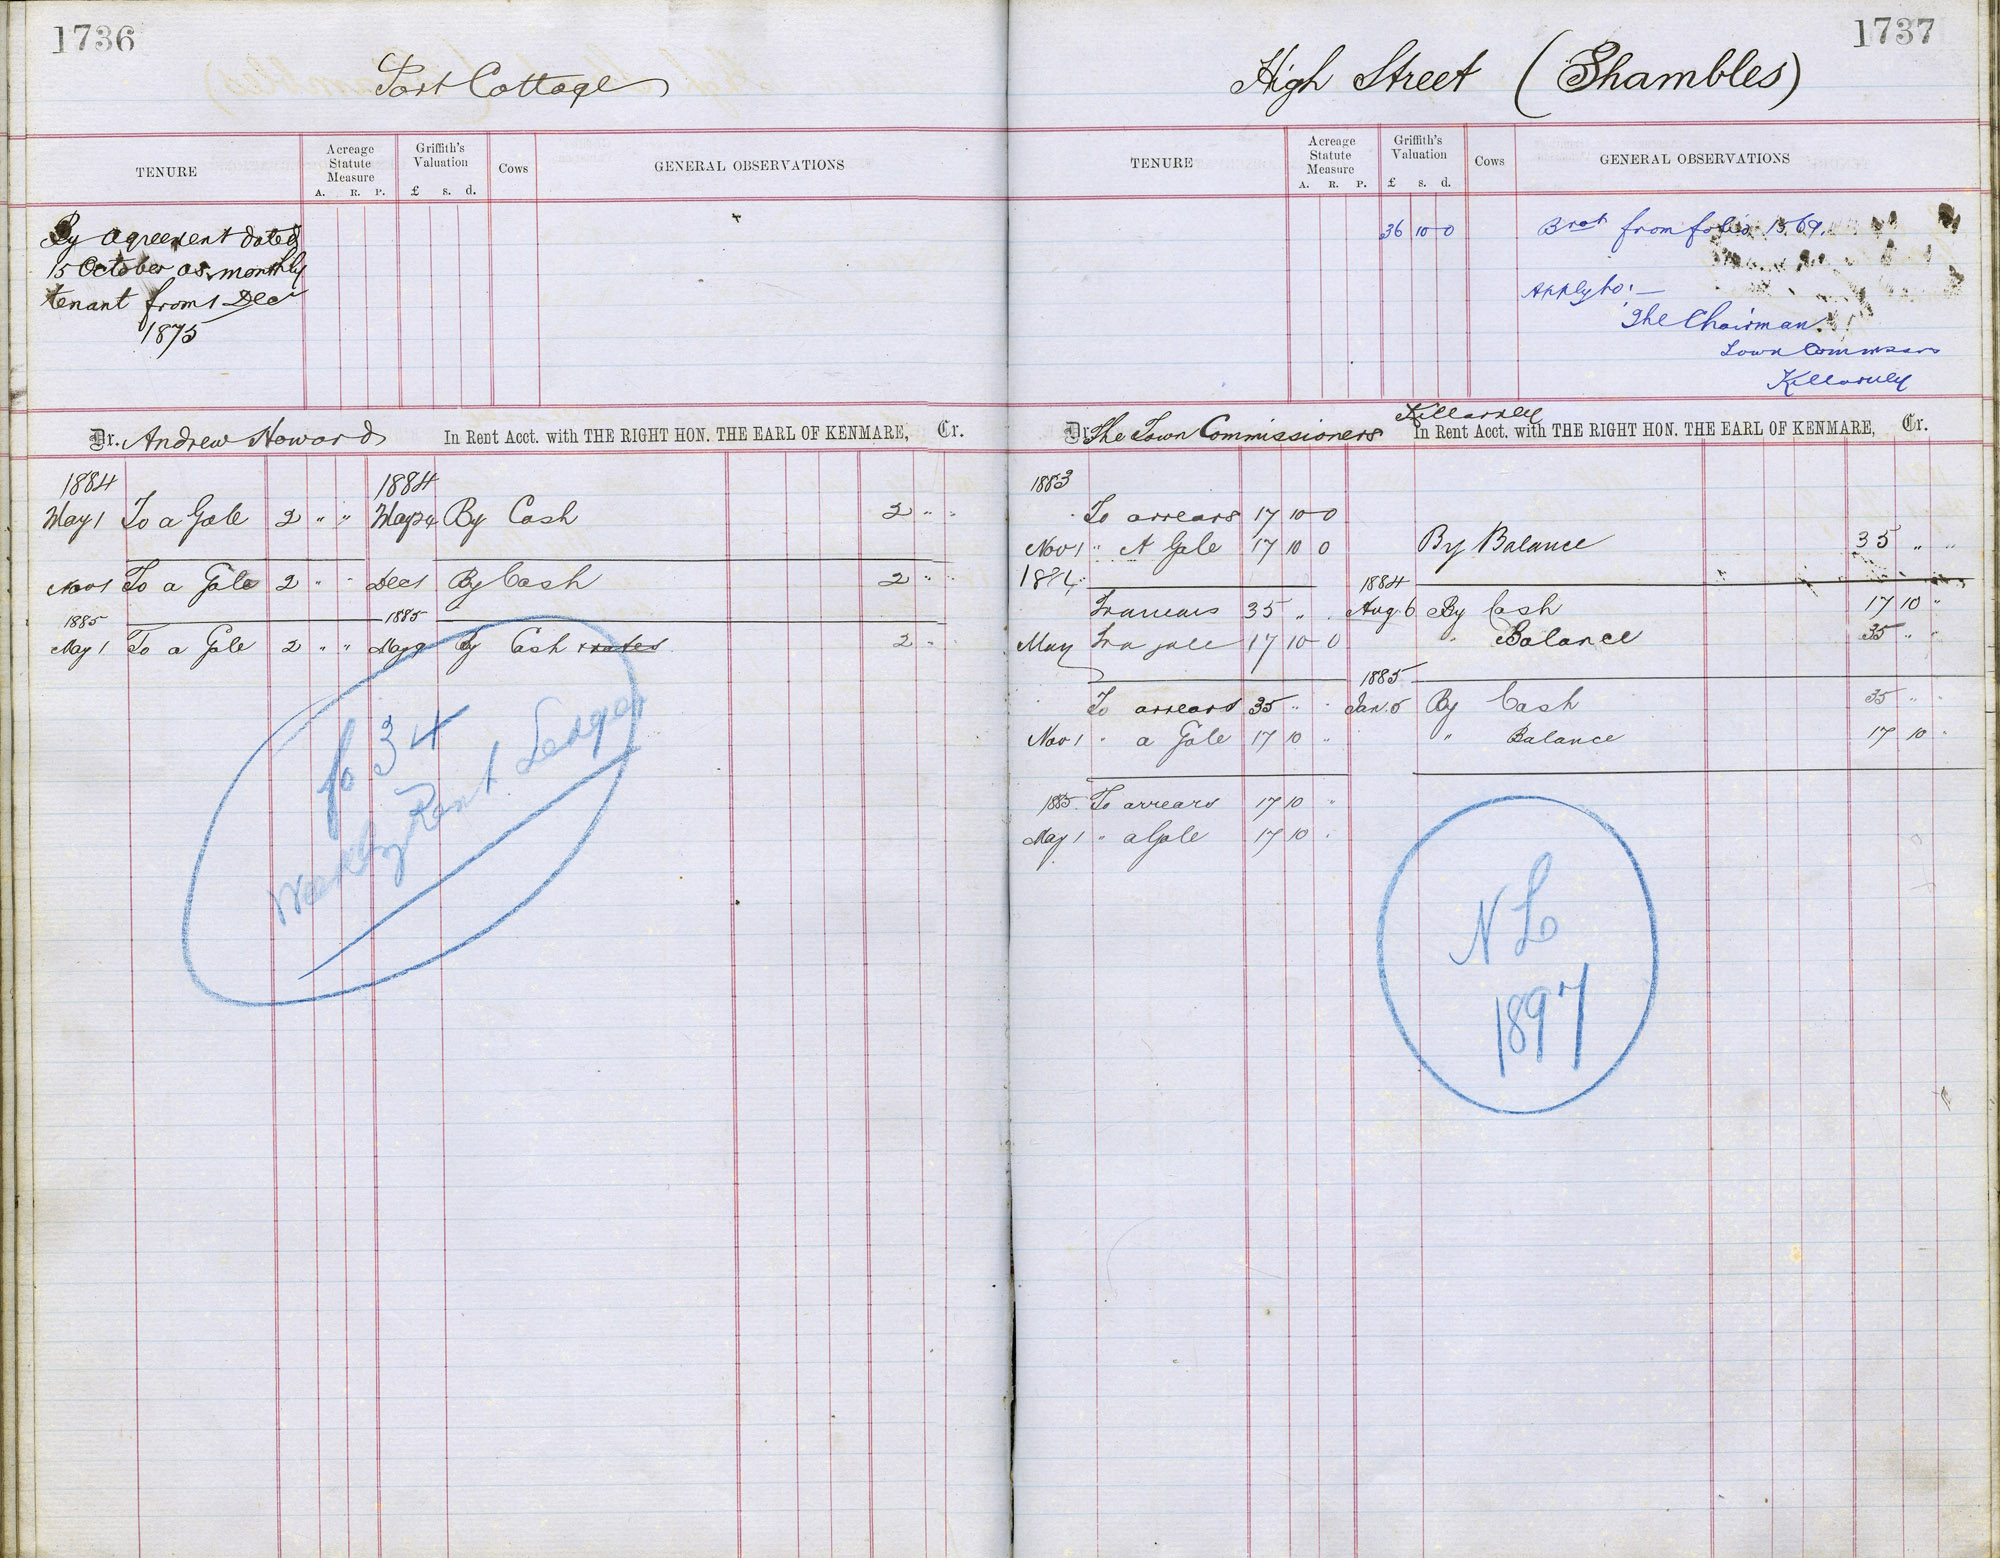 1736
Port Cottage
TENURE
Acreage
Statute
Measure
A. R. P.
Griffith's
Valuation
£ s. d.
Cows
GENERAL OBSERVATIONS
By agreement dated
15 October as monthly
tenant from 1 Decr
1875
Dr. Andrew Howard In Rent Acct. with THE RIGHT HON. THE EARL OF KENMARE, Cr.
1884 1884
May 1 To a Gale 2 " " May 24 By Cash 2 " "
Nov 1 To a Gale 2 " " Dec 1 By Cash 2 " "
1885 1885
May 1 To a Gale 2 " " May 9 By Cash 2 "
fo 34
Weekly Rent Ledger
1737
High Street (Shambles)
TENURE
Acreage
Statute
Measure
A. R. P.
Griffith's
Valuation
£ s. d.
Cows
GENERAL OBSERVATIONS
36 10 0 Brot from folio 1569.
Apply to:—
The Chairman
Town Commssrs
Killarney
Killarney
Dr. The Town Commissioners In Rent Acct. with THE RIGHT HON. THE EARL OF KENMARE, Cr.
1883
To arrears 17 10 0
Nov 1 " A Gale 17 10 0 By Balance 35 " "
1884 1884
To arrears 35 " " Aug 6 By Cash 17 10 "
May To a gale 17 10 0 " Balance 35 " "
1885
To arrears 35 " " Jan 5 By Cash 35 " "
Nov 1 " a Gale 17 10 " " Balance 17 10 "
1885. To arrears 17 10 "
May 1 " a Gale 17 10 "
N L
1897